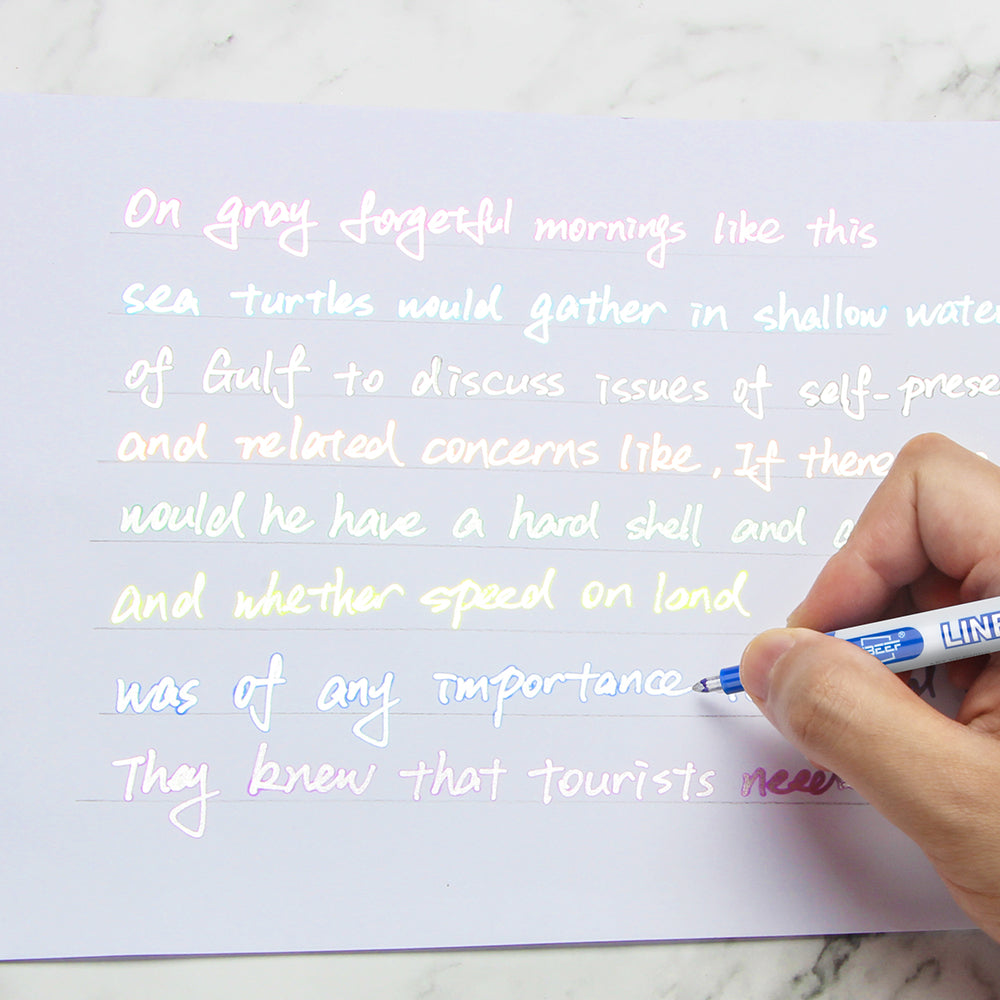 On gray forgetful mornings like this
sea turtles would gather in shallow water
of Gulf to discuss issues of self-prese
and related concerns like, If there
would he have a hard shell and a
and whether speed on land
was of any importance
They knew that tourists never
BEEF® LINE